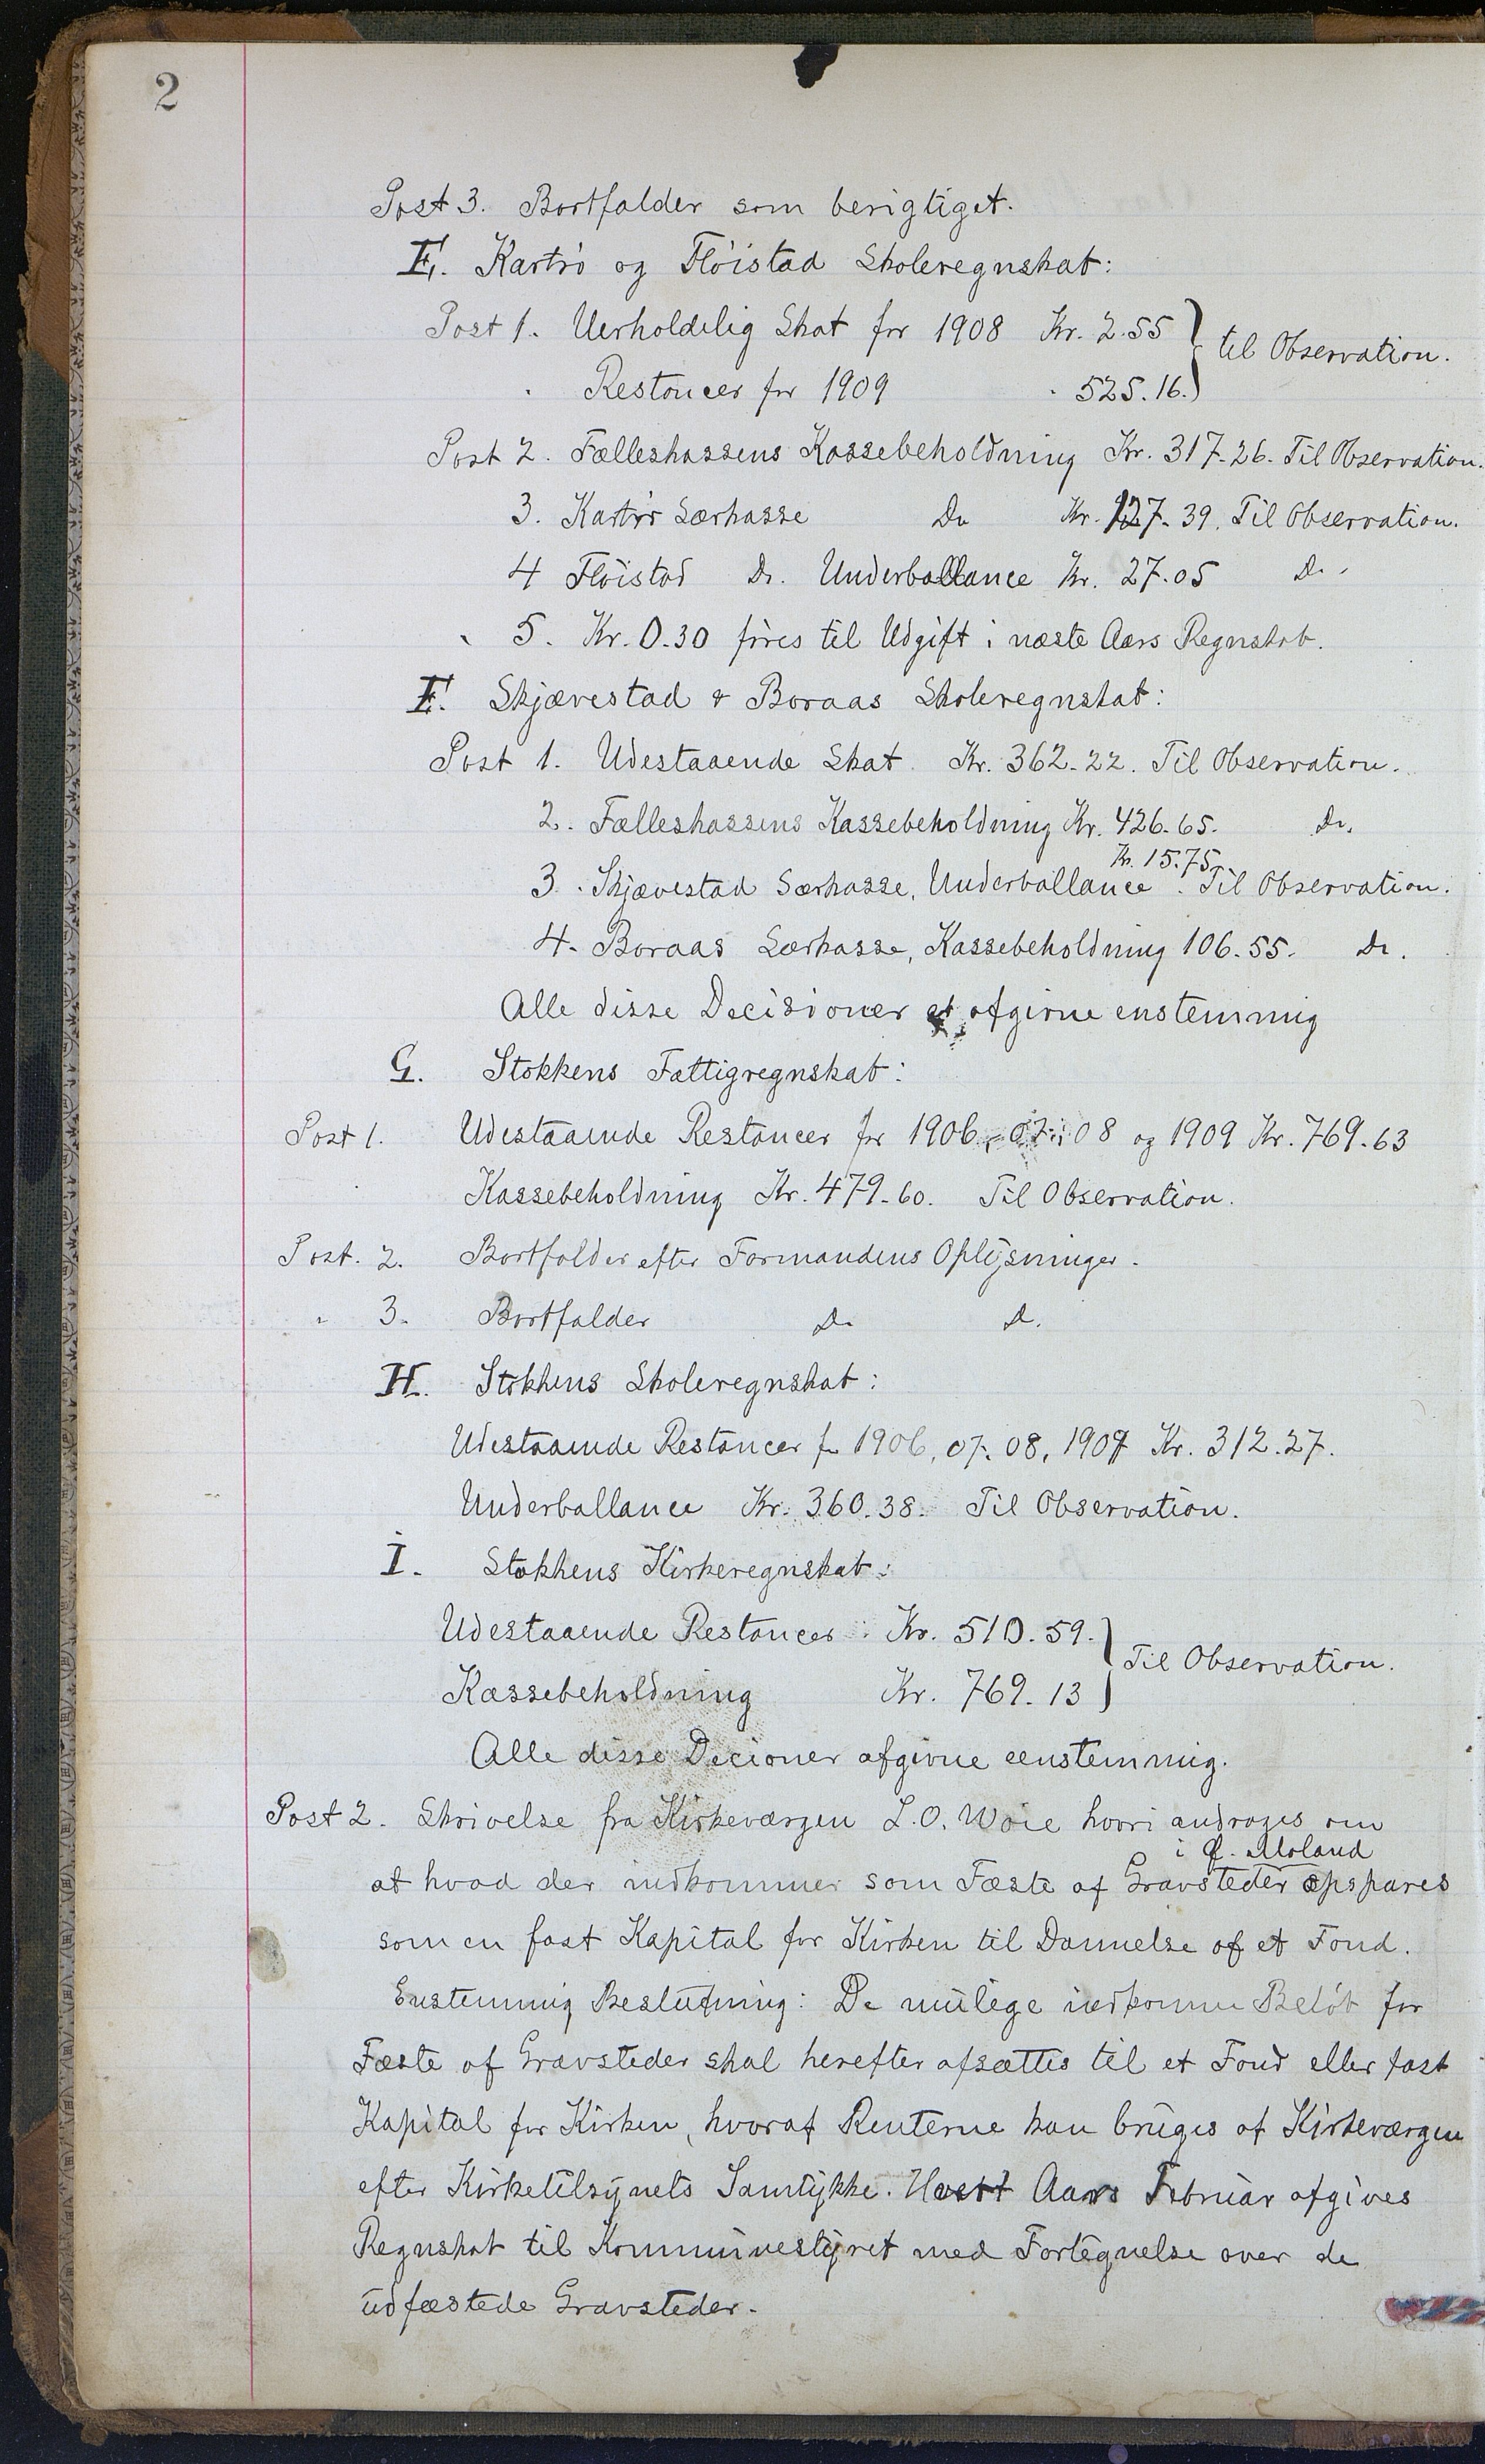 2
Post 3. Bortfalder som berigtiget.
E. Kartrö og Flöistad Skoleregnskab:
Post 1. Uerholdelig Skat for 1908 Kr. 2.55 } til Observation.
" Restancer for 1909 " 525.16. }
Post 2. Fælleskassens Kassebeholdning Kr. 317-26. Til Observation.
3. Kartrö Særkasse Do Kr. 127-39. Til Observation.
4 Flöistad Do. Underballance Kr. 27.05 Do.
" 5. Kr. 0.30 föres til Udgift i næste Aars Regnskab.
F. Skjævestad & Boraas Skoleregnskab:
Post 1. Udestaaende Skat Kr. 362-22. Til Observation.
2. Fælleskassens Kassebeholdning Kr. 426-65. Do.
3. Skjævestad Særkasse, Underballance Kr. 15.75. Til Observation.
4. Boraas Særkasse, Kassebeholdning 106.55. Do.
Alle disse Decisioner afgivne enstemmig
G. Stokkens Fattigregnskab:
Post 1. Udestaaende Restancer for 1906, 07, 08 og 1909 Kr. 769-63
Kassebeholdning Kr. 479-60. Til Observation.
Post. 2. Bortfalder efter Formandens Oplysninger.
" 3. Bortfalder Do Do.
H. Stokkens Skoleregnskab:
Udestaaende Restancer for 1906, 07, 08, 1909 Kr. 312.27.
Underballance Kr. 360.38. Til Observation.
I. Stokkens Kirkeregnskab:
Udestaaende Restancer Kr. 510.59. } Til Observation.
Kassebeholdning Kr. 769-13 }
Alle disse Decioner afgivne eenstemmig.
Post 2. Skrivelse fra Kirkeværgen L.O. Woie hvori andrages om
at hvad der indkommer som Fæste af Gravsteder i Ö. Moland opspares
som en fast Kapital for Kirken til Dannelse af et Fond.
Enstemmig Beslutning: De mulige indkomne Beløb for
Fæste af Gravsteder skal herefter afsættes til et Fond eller fast
Kapital for Kirken, hvoraf Renterne kan bruges af Kirkeværgen
efter Kirketilsynets Samtykke. Hvert Aars Februar afgives
Regnskab til Kommunestyret med Fortegnelse over de
udfæstede Gravsteder.